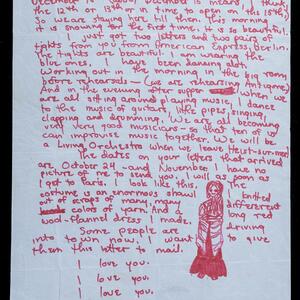 December 15 means I think
the 12th or 13th or in time to open on the 15th,
So we are staying here till then. This morning
it is snowing for the first time, it is so beautiful.
I just got two letters and two pairs of
tights from you from American Express, Berlin.
The tights are beautiful. I am wearing the
ones. I have been dancing alot.
Working out in the morning in the big room
before rehearsals - (we are rehearsing Antigone)
And in the evening after supper we
are all sitting around playing music, I dance
to the music of guitars, little pipes, singing,
clapping and drumming. We are all becoming
very very good musicians - so that ten of us
can improvise music together. We will be
a Living Orchestra when we leave Heist-sur-mer!
The dates on your letters that arrived
are October 24 and November 1. I have no
picture of me to send. I will as soon as
I get to Paris. I look like this, the
costume is an enormous shawl knitted
out of scraps of many, many different
colors of yarn. And a long red
wool-flannel dress I made.
Some people are driving
into town now. I want to give
them this letter to mail.
I love you.
I love you.
I love you.